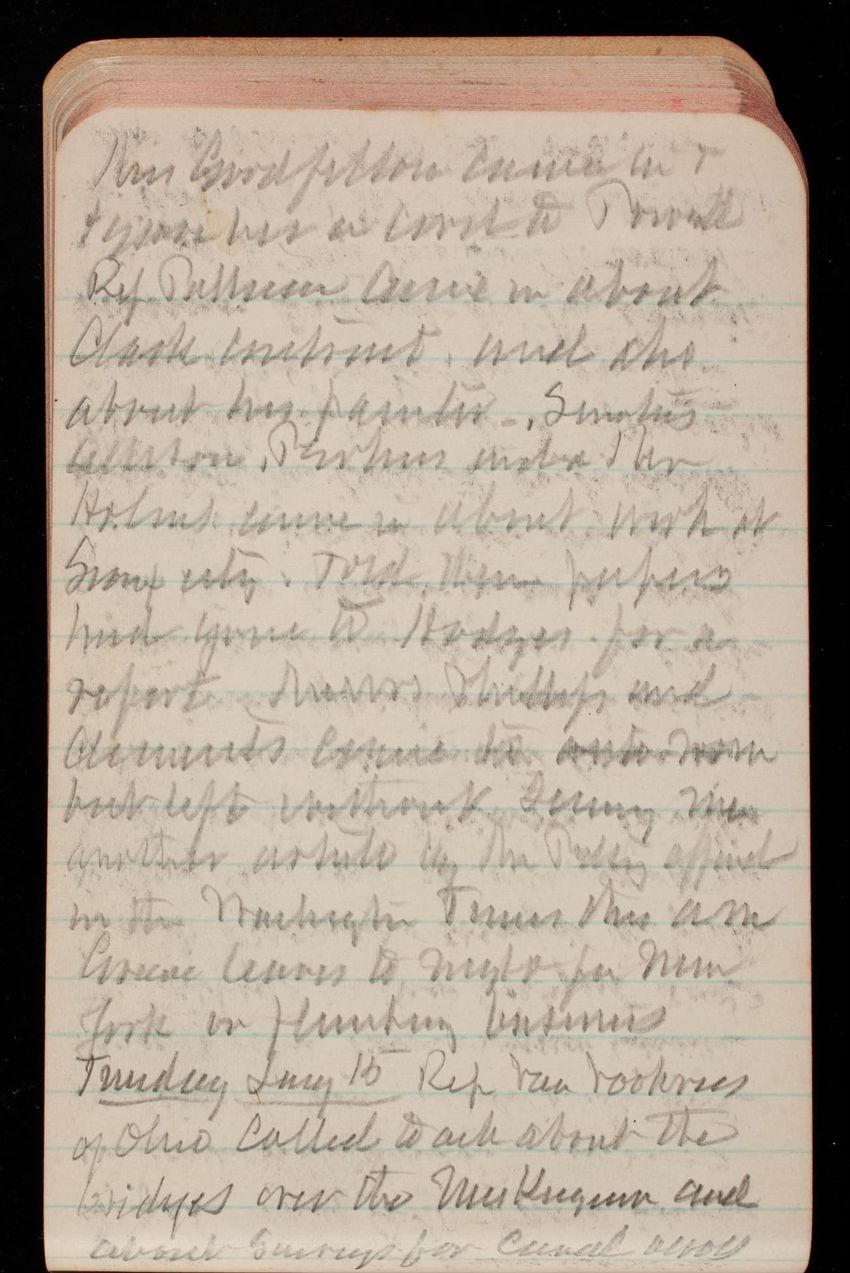 Miss Goodfellow came in &
& gave her a card to
Rep came in about
Clark contract and also
about his painter -. Senators
Allison, Perkins and Rep
came in about work at
Sioux city. Told them papers
had gone to Hodges for a
report. Phillips and
Clements came to
but left without seeing me
another article by
in the Washington Times this am
Greene leaves to night for New
York on plumbing business
Tuesday Jany 15 Rep Van Voorhees
of Ohio Called to ask about the
bridges over the Muskingum and
about Surveys for Canal across